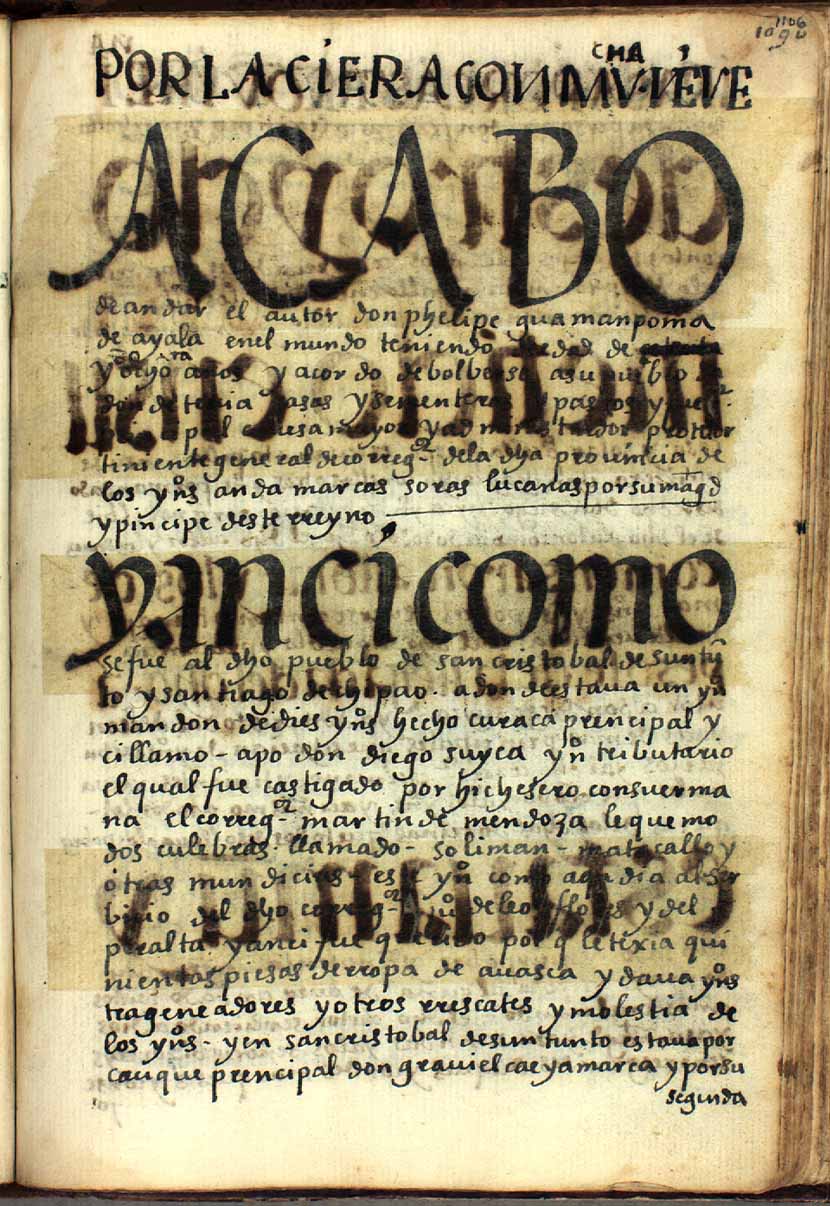 1106
109
POR LA CIERA CON MVCHA NÉVE
ACABO
de andar el autor don phelipe guaman poma
de ayala en el mundo teniendo de edad de
y ocho años y acordo de bolberse a su pueblo
donde tenia casas y sementeras y pastos y
pal cauesa mayor y administrador protetor
tiniente general de correg.or de la dha prouincia de
los yn̊s andamarcas soras lucanas por su mag.d
y pincipe deste rreyno
y.ancí como
se fue al dho pueblo de san cristobal de suntũ
to y santiago de chipao. adonde estaua un yn̊
mandon de dies yn̊s hecho curaca prencipal y
cillamo - apo don diego suyca yn̊ tributario
el qual fue castigado por hichesero con su erma
na el correg.or martin de mendoza le quemo
dos culebras. llamado - soliman - matacallo y
otras mundicias - este yn̊ como acudia al ser
bicio del dho correg.or jů de leo flores y del
peralta y anci fue querido por q̃ le texia qui
nientas piesas de rropa de auasca y daua yn̊s
trageneadores y otros rrescates y molestia de
los yn̊s - y en san cristobal de suntunto estaua por
cauque prencipal don grauiel cacyamarca y por su
segunda